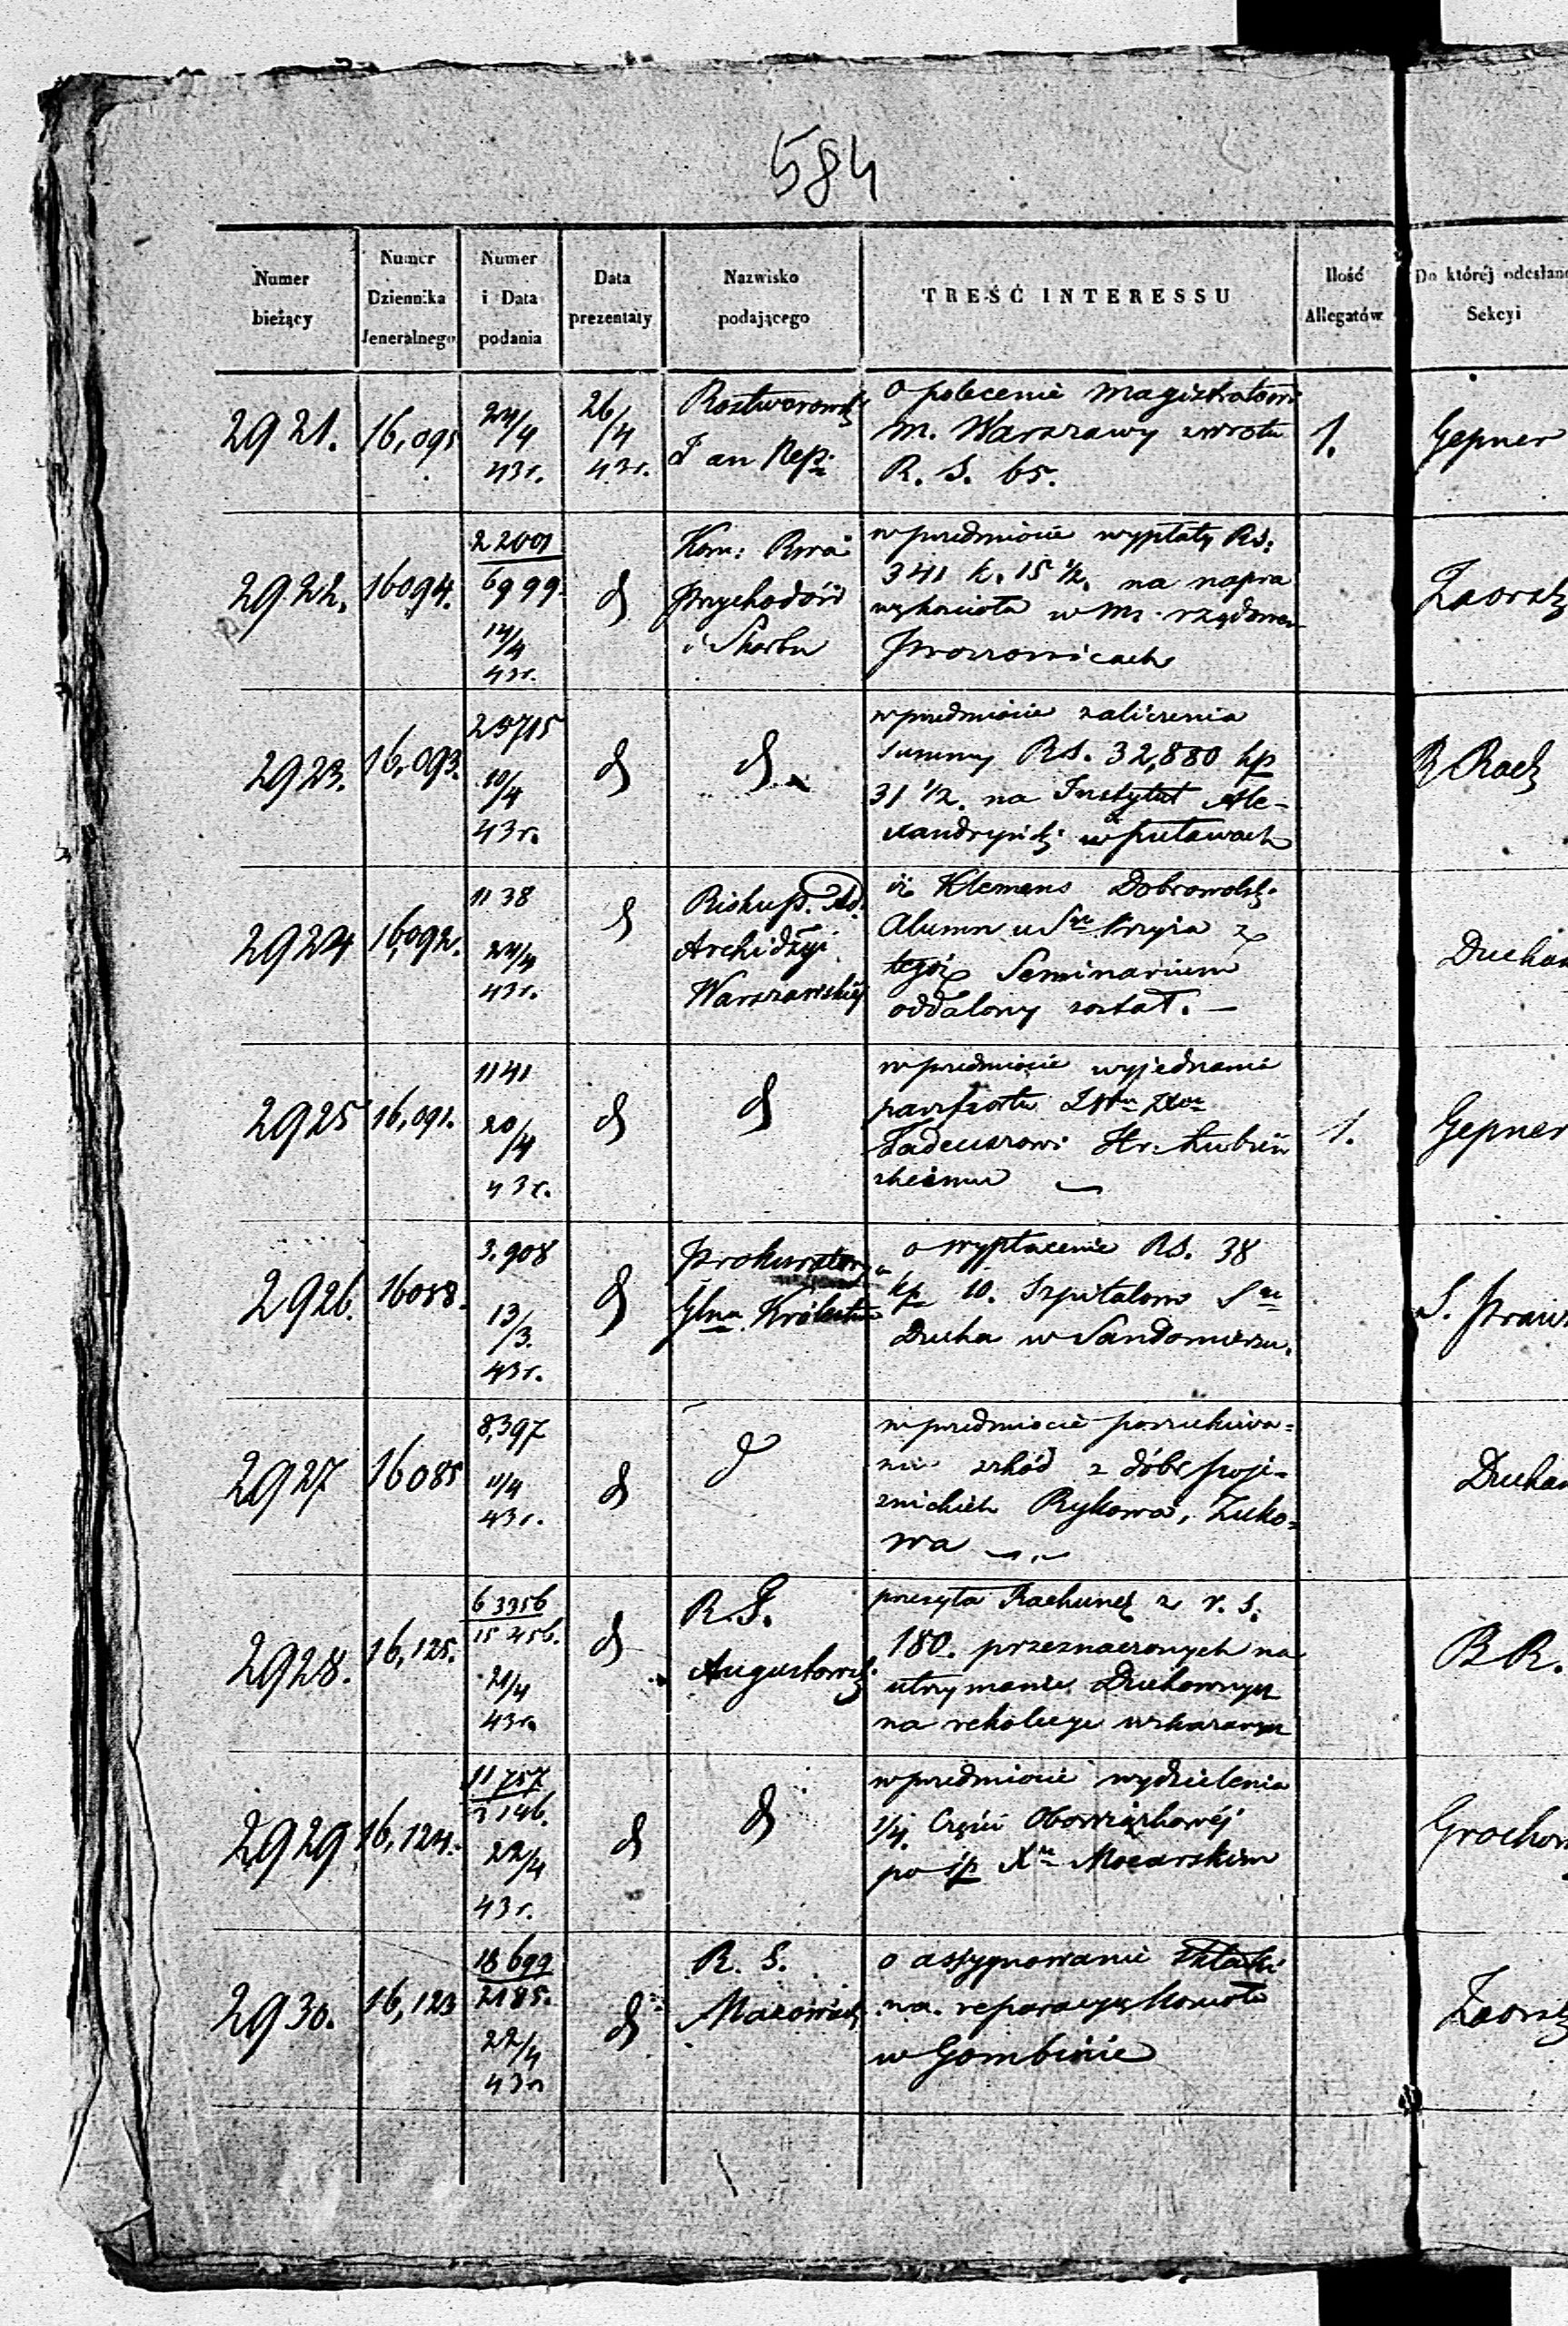 584
Numer bieżący
Numer Dziennika Jeneralnego
Numer i Data podania
Data prezentaty
Nazwisko podającego
TREŚĆ INTERESSU
Ilość Allegatów
Do któréj odesłano Sekcyi
2921.
16,095
24/4
43 r.
26/4
43 r.
Roztworowsk
Jan Nep:
o polecenie Magistratowi
m. Warszawy zwrotu
R. S. 65.
1.
Gepner
2922.
16094.
22001
6999.
14/4
43 r.
d
Kom: Rwa
Przychodów
i Skarbu
w przedmiocie wypłaty Rs:
341 k. 15 1/2. na napra
wę kościoła w M. rządowem
Proszowicach
2923.
16,093.
10/4
43 r.
d
d
w przedmiocie zaliczenia
summy RS. 32,880 kp
31 1/2. na Instytut Ale-
xandryńsk: w Puławach
2924
16,092.
1138
24/4
43 r.
d
Biskup. Ad.
Archidyi.
Warszawskiéj
iż Klemens Dobrowolsk
Alumn u Sgo Krzyża z
tegoż Seminarium
oddalony został. —
2925
16,091.
1141
20/4
43 r.
d
d
w przedmiocie wyjednania
paszportu
Tadeuszowi Hr. Łubień
skiemu
1.
Gepner
2926.
16088.
3.908
13/3.
43 r.
d
Prokuratorya
Glna Królestwa
o wypłacenie RS. 38
kp 10. Szpitalowi Sgo
Ducha w Sandomierzu.
2927
16085
8,397
11/4
43 r.
d
d
w przedmiocie poszukiwa=
nia szkód z dóbr poje-
znickich Rykowa, Żuko=
wa
2928.
16,125.
6 3356
15 456.
21/4
43 r.
d
R. G.
Augustowsk.
przesyła Rachunek z r. s.
180. przeznaczonych na
utrzymanie Duchownych
na rekolekcye wskazanych
B R.
2929
16,124.
11757
3146.
22/4
43 r.
d
d
w przedmiocie wydzielenia
1/4. Części Obowiązkowéj
po śp Xdzu Mocarskim
2930.
16,123
18 699
2185.
22/4
43 r
d
R. G.
Mazowiec
o assygnowanie składki
na reparacyę kościoła
w Gombinie